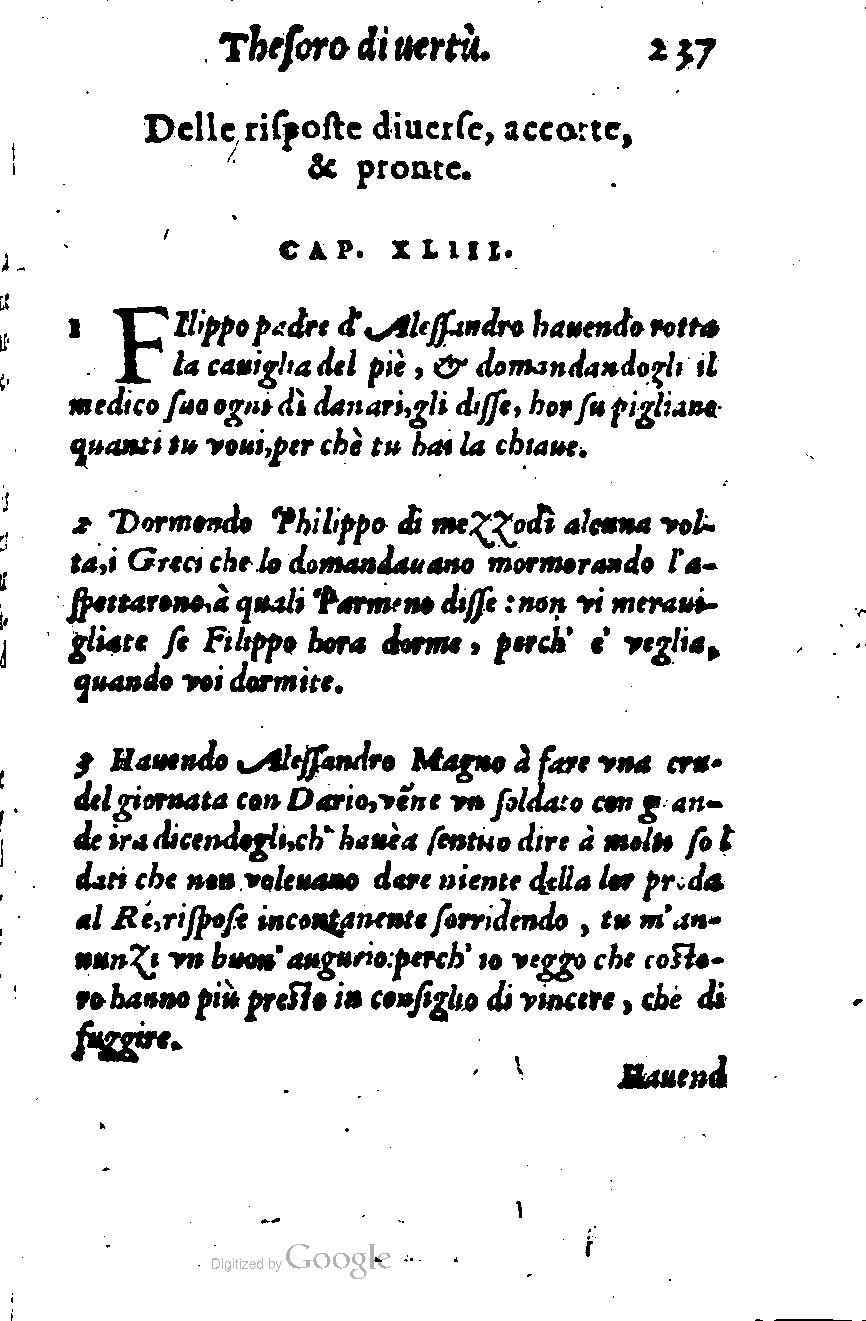 Theſoro di uertù. 237
Delle riſpoſte diuerſe, accorte,
& pronte.
CAP. XLIII.
1 FIlippo padre d' Aleſſandro hauendo rotta
la cauiglia del piè, & domandandogli il
medico ſuo ogni dì danari, gli diſſe, hor ſu pigliane
quanti tu voui, per chè tu hai la chiaue.
2 Dormendo Philippo di mezzodì alcuna vol-
ta, i Greci che lo domandauano mormorando l'a-
ſpettarono, à quali Parmeno diſſe : non vi meraui-
gliate ſe Filippo hora dorme, perch' e' veglia,
quando voi dormite.
3 Hauendo Aleſſandro Magno à fare vna cru-
del giornata con Dario, vẽne vn ſoldato con gran-
de ira dicendogli, ch' hauèa ſentito dire à molti ſol
dati che non voleuano dare niente della lor preda
al Rè, riſpoſe incontanente ſorridendo, tu m'an-
nunzi vn buon' augurio: perch' io veggo che coſto-
ro hanno più preſto in conſiglio di vincere, che di
fuggire.
Hauend
Digitized by Google